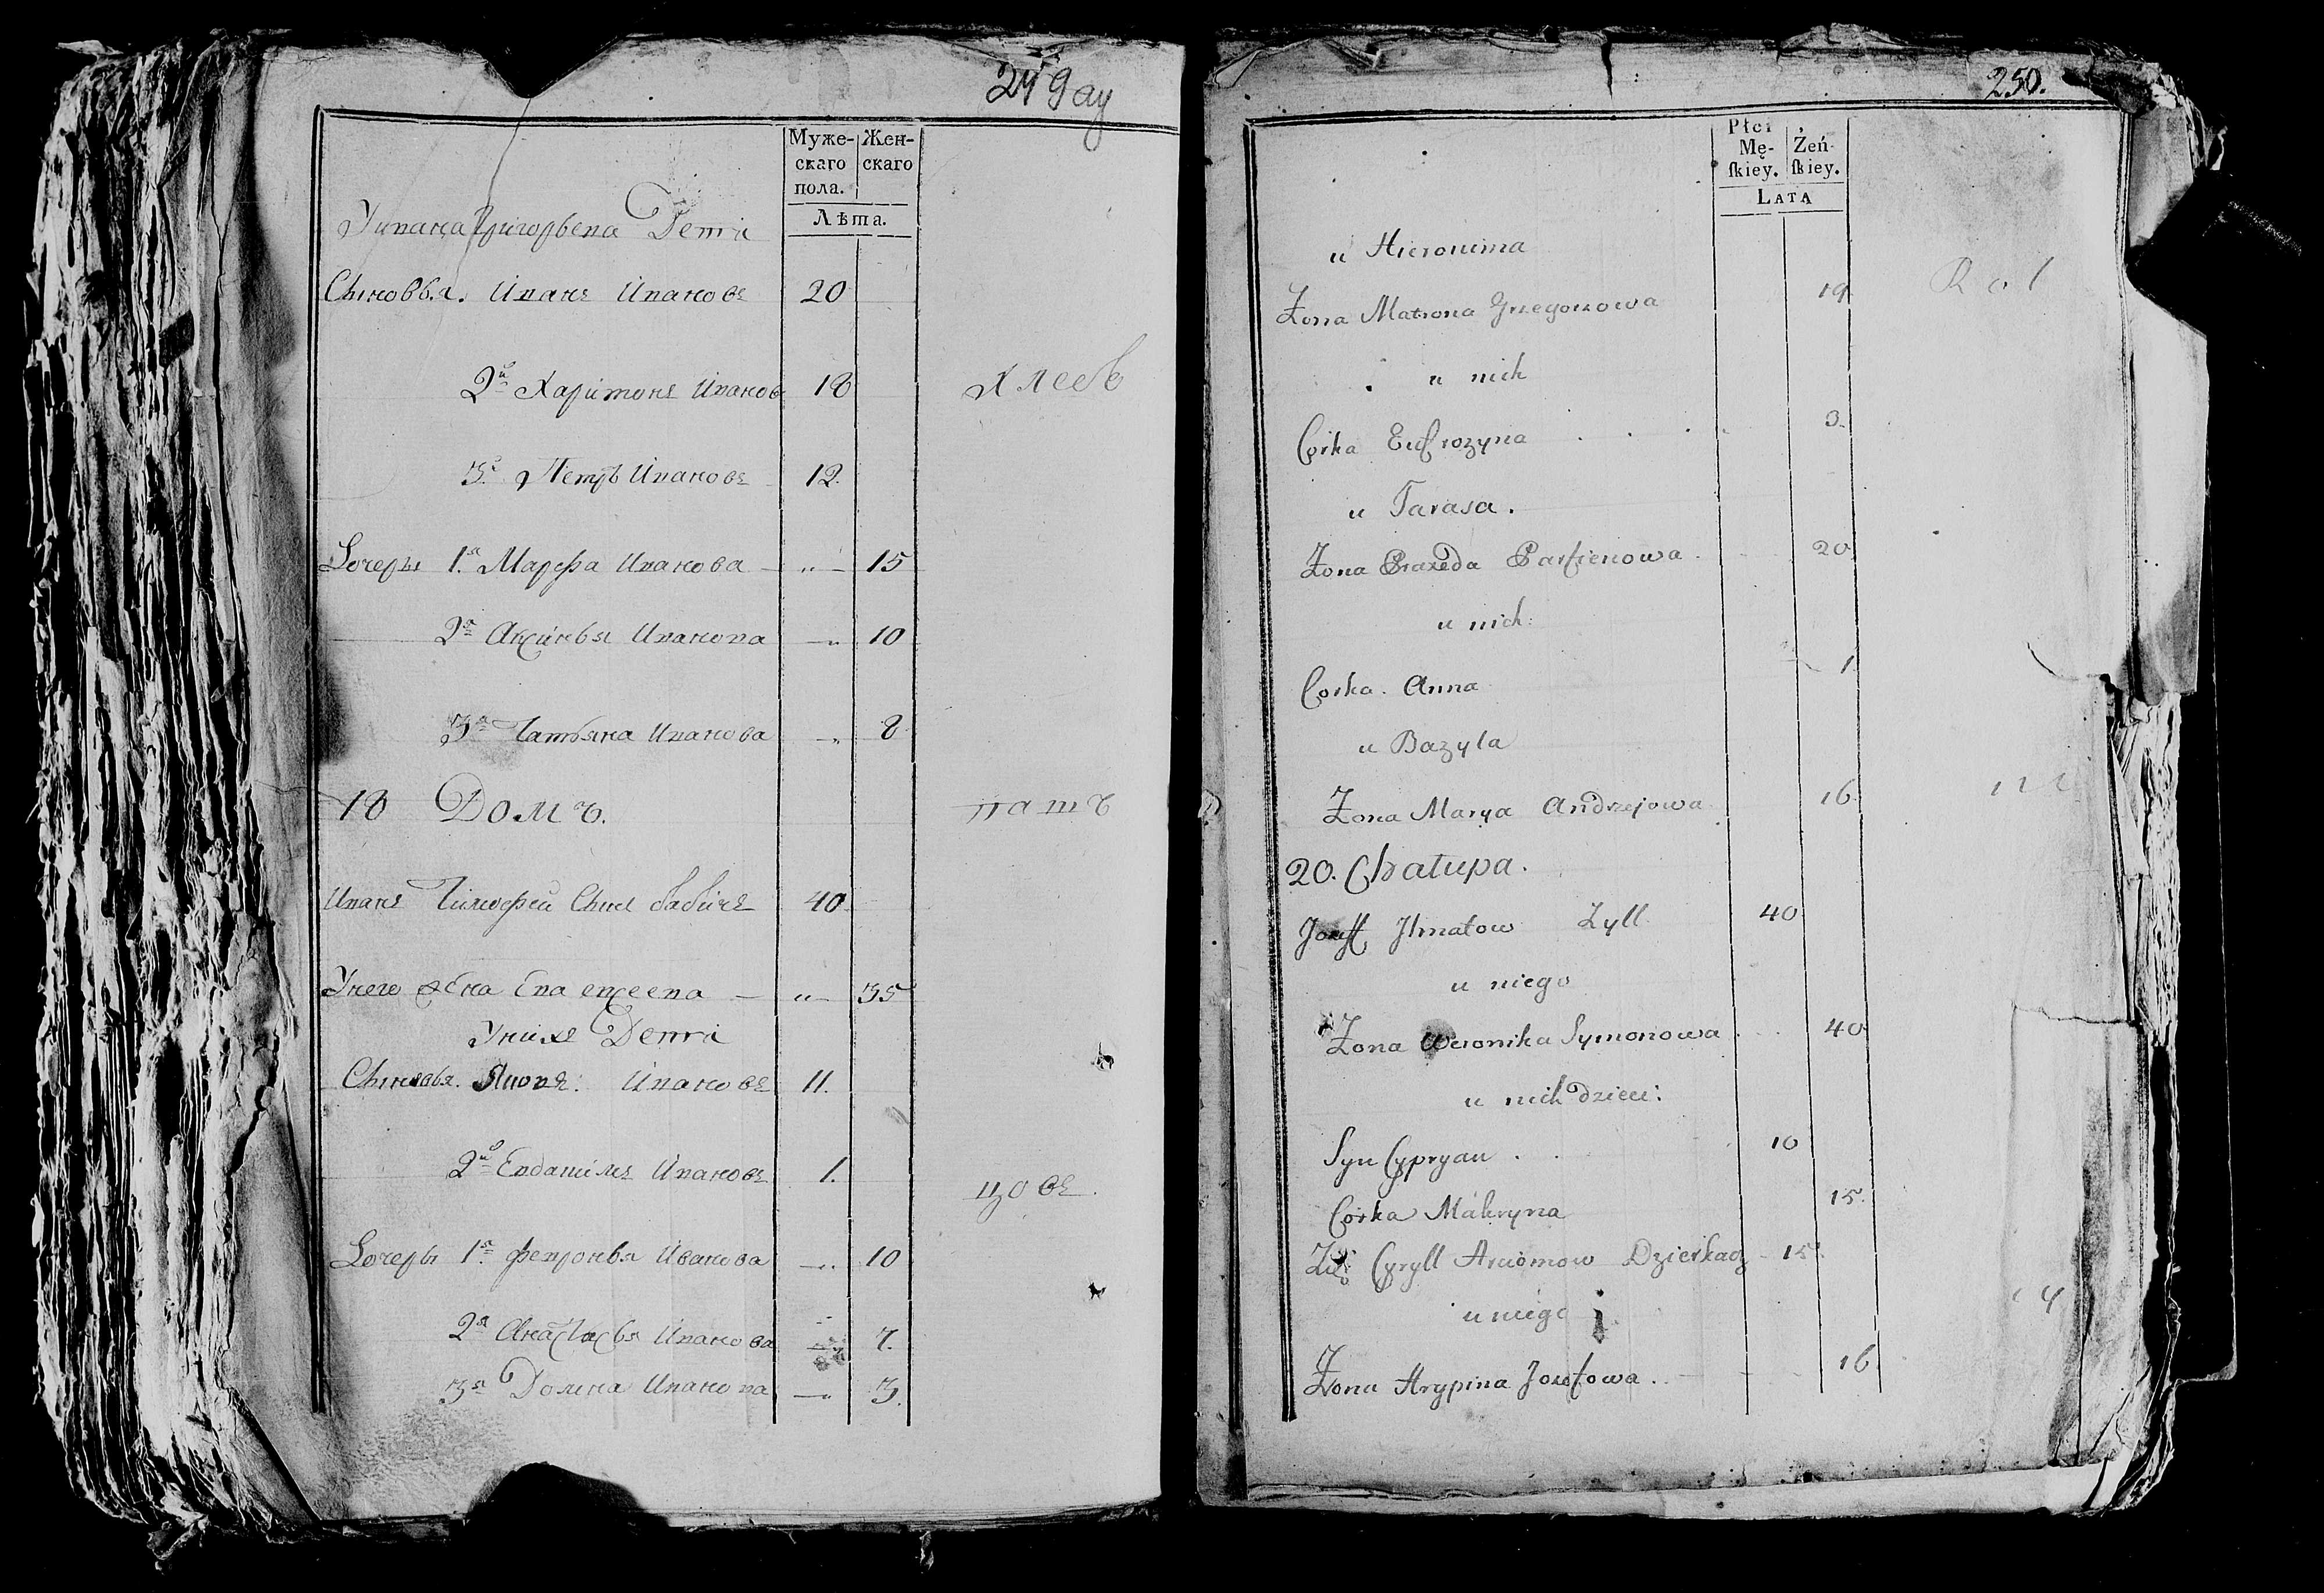 249 ау
Муже-
скаго
пола.
Жен-
скаго
Лѣта.
Уивана Григорьева Дети
Сыновья. Иване Иванове 20
2й Харитоне Иванов 18
хлеб
3й Петръ Иванове 12.
Дочеры 1я Марфа Иванова — " — 15
2я Аксинья Иванова — " 10
3я Татьяна Иванова — " 8
18 Домъ.
пашъ
Иване Тимофеи Сынъ 40
Унего жена Ева — " — 35
Унихе Дети
Сыновья. Иванове 11.
2й Иванове 1.
цове.
Дочеры 1я Февронья Иванова — " 10
2я Анастасья Иванова 7.
3я Домна Иванова — " 3.
250.
Płci
Mę-
ſkiey.
Żeń-
ſkiey.
LATA
u Hieronima
Rol
Żona Matrona Grzegorzowa 19
u nich
Corka Eufrozyna . . . 3.
u Tarasa.
Żona Praxeda Parfienowa 20
u nich:
Corka. Anna 1
u Bazyla
Żona Marya Andrzejowa 16
20. Chałupa.
Jozeff Ihnatow Zyll 40
u niego
Żona Weronika Symonowa 40
u nich dzieci:
Syn Cypryan . . 10
Corka Makryna 15.
Cyryll Arciomow Dzierkacz 15
u niego
Żona Hrypina Jozefowa. 16